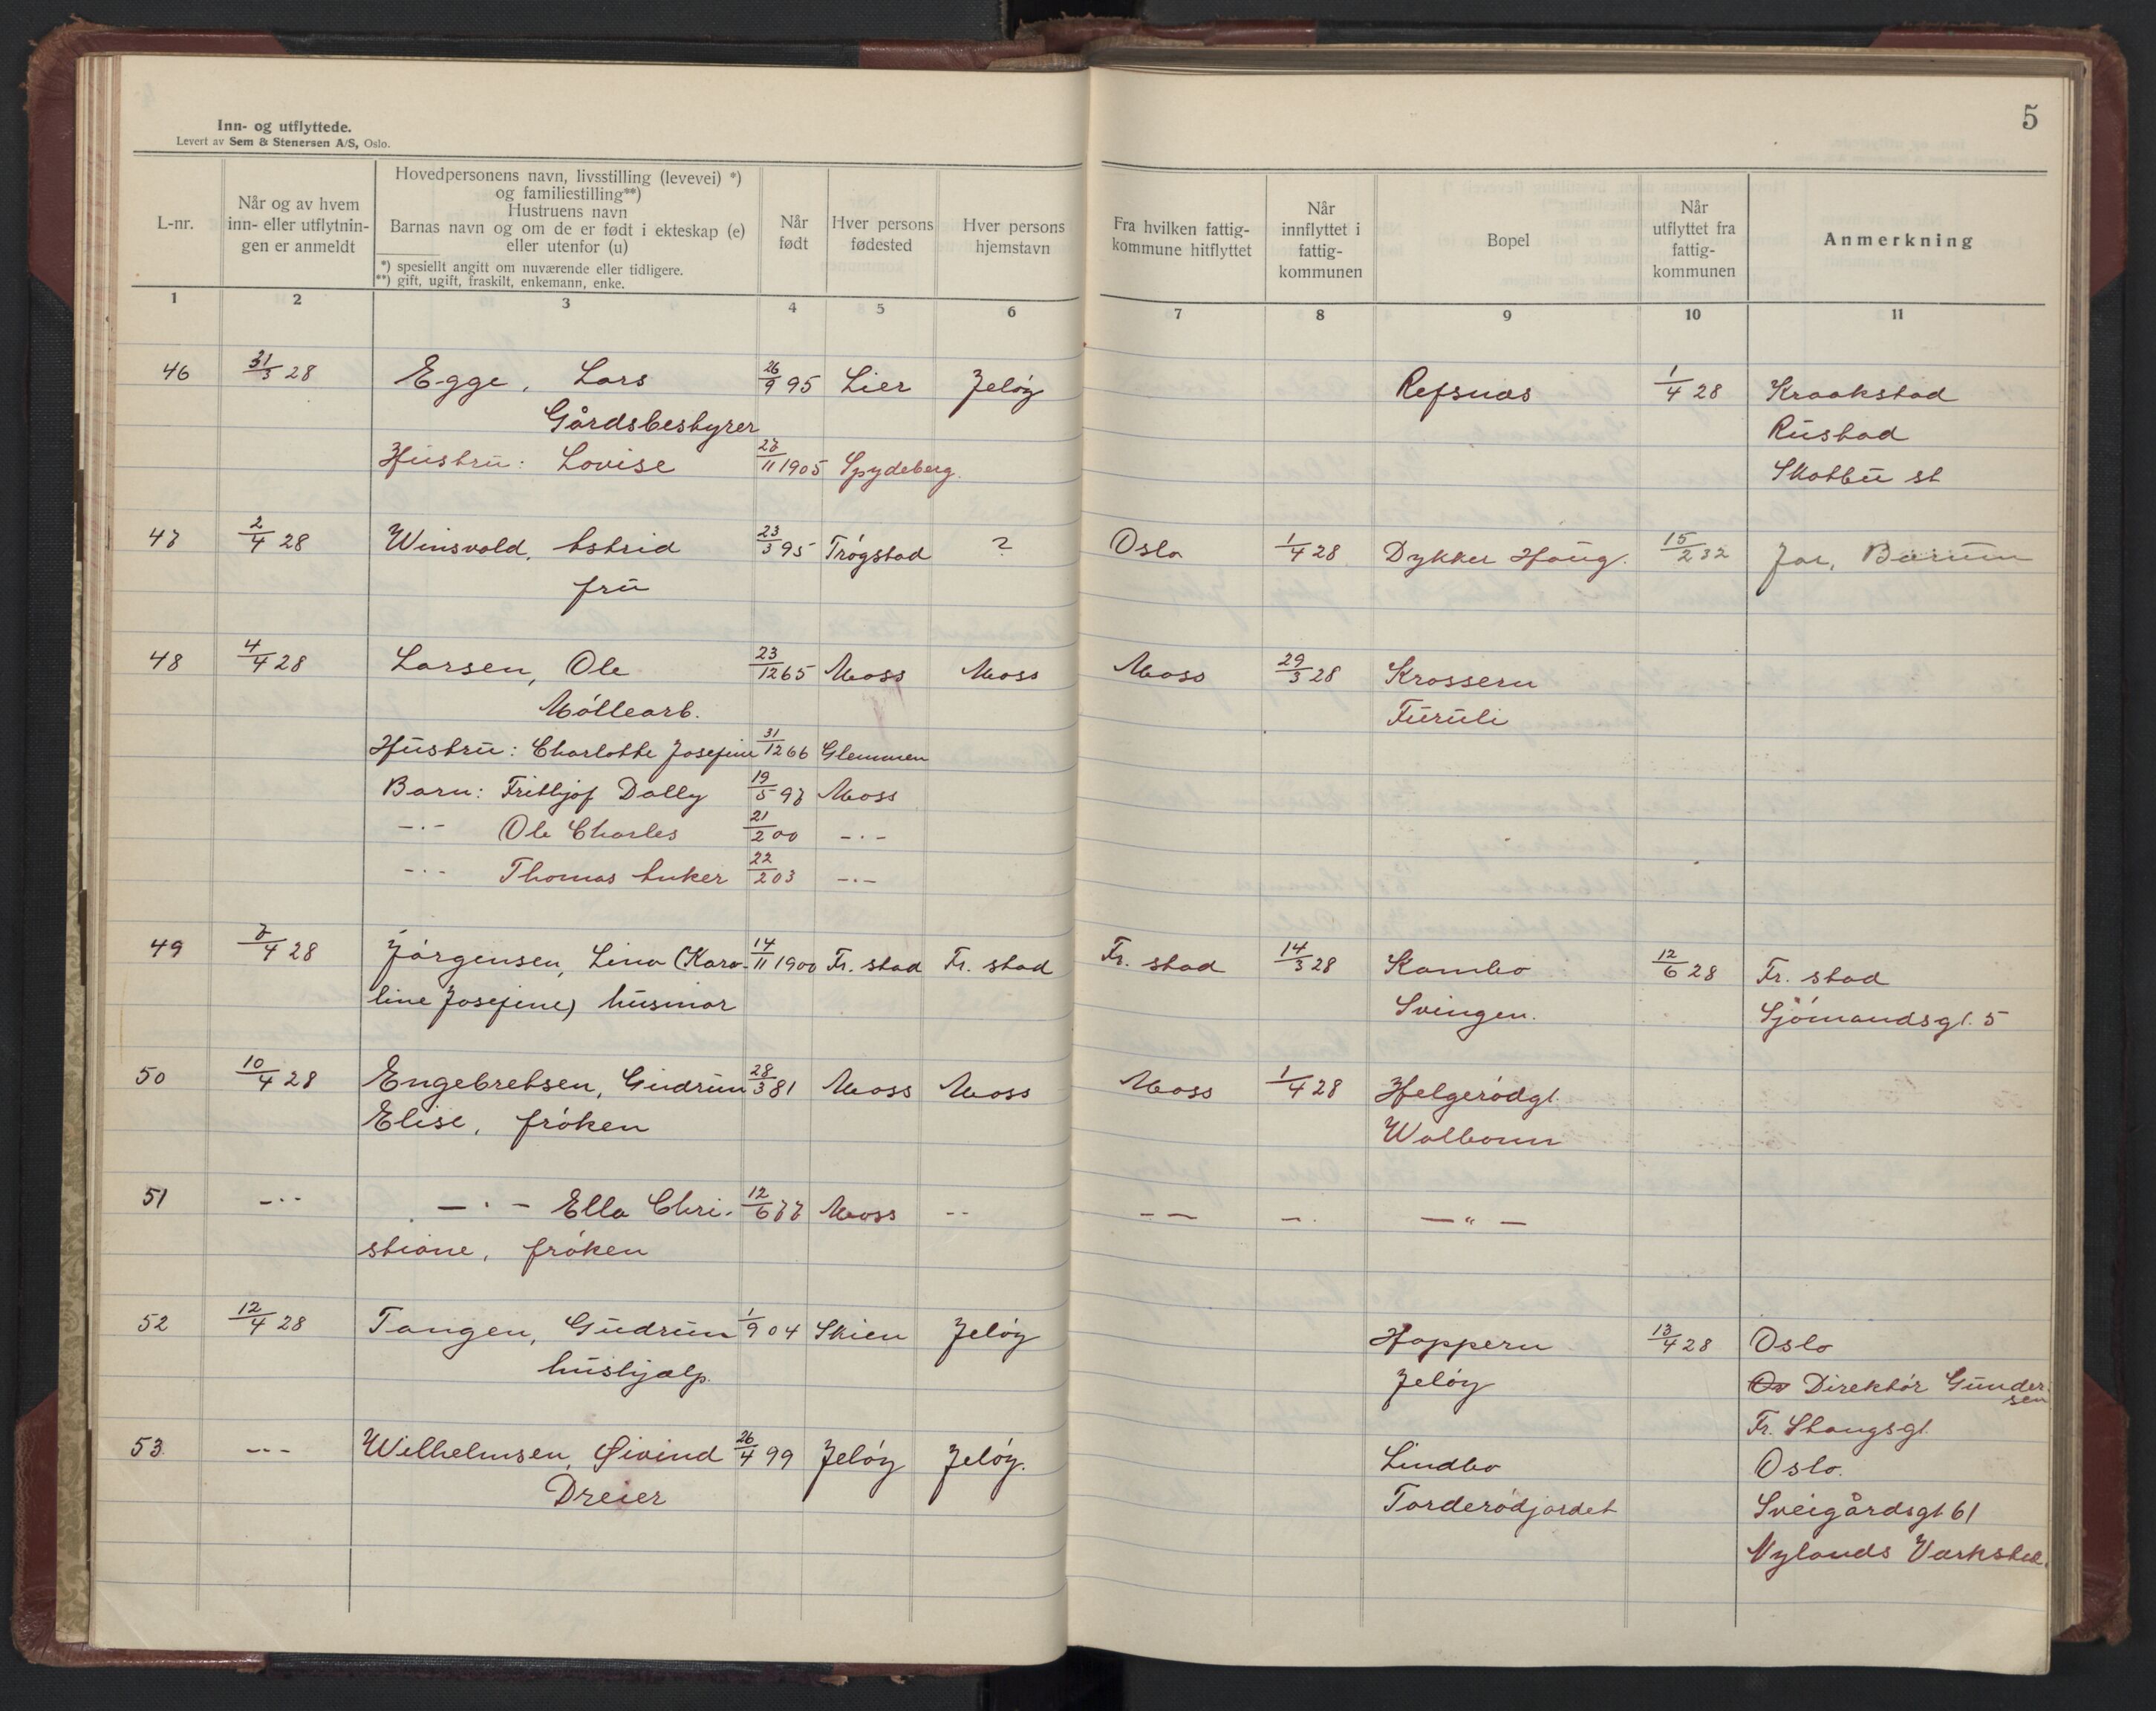 5
Inn- og utflyttede.
Levert av Sem & Stenersen A/S, Oslo.
L-nr.
Når og av hvem
inn- eller utflytnin-
gen er anmeldt
Hovedpersonens navn, livsstilling (levevei) *)
og familiestilling**)
Hustruens navn
Barnas navn og om de er født i ekteskap (e)
eller utenfor (u)
*) spesiellt angitt om nuværende eller tidligere.
**) gift, ugift, fraskilt, enkemann, enke.
Når
født
Hver persons
fødested
Hver persons
hjemstavn
Fra hvilken fattig-
kommune hitflyttet
Når
innflyttet i
fattig-
kommunen
Bopel
Når
utflyttet fra
fattig-
kommunen
Anmerkning
1 2 3 4 5 6 7 8 9 10 11
46 31/3 28 Egge, Lars 26/9 95 Lier Jeløy Refsnæs 1/4 28 Kraakstad
Gårdsbestyrer Rustad
Hustru: Lovise 27/11 1905 Spydeberg. Skotbu st
47 2/4 28 Winsvold, Astrid 23/3 95 Trøgstad ? Oslo 1/4 28 Dykker Haug. 15/2 32 Jar, Bærum
fru
48 4/4 28 Larsen, Ole 23/12 65 Moss Moss Moss 29/3 28 Krossern
Møllearb. Furuli
Hustru: Charlotte Josefine 31/12 66 Glemmen
Barn: Frithjof Dally 19/5 97 Moss
-·- Ole Charles 21/2 00 -·-
-·- Thomas Anker 22/2 03 -·-
49 7/4 28 Jørgensen, Lina (Karo- 14/11 1900 Fr. stad Fr. stad Fr. stad 14/3 28 Kambo 12/6 28 Fr. stad
line Josefine) husmor Svingen. Sjömandsgt. 5
50 10/4 28 Engebretsen, Gudrun 28/3 81 Moss Moss Moss 1/4 28 Helgerødgt.
Elise, frøken Walbonn
51 -·- -·- Ella Chri- 12/6 77 Moss -- -- -· -"-
stiane, frøken
52 12/4 28 Tangen, Gudrun 1/9 04 Skien Jeløy Hoppern 13/4 28 Oslo
hushjælp. Jeløy Os Direktør Gunder-
sen
Fr. Stangsgt.
53. -·- Wilhelmsen, Øivind 26/4 99 Jeløy Jeløy. Lindbo Oslo.
Dreier Torderødjordet Sveigårdsgt 61
Nylands Værksted.